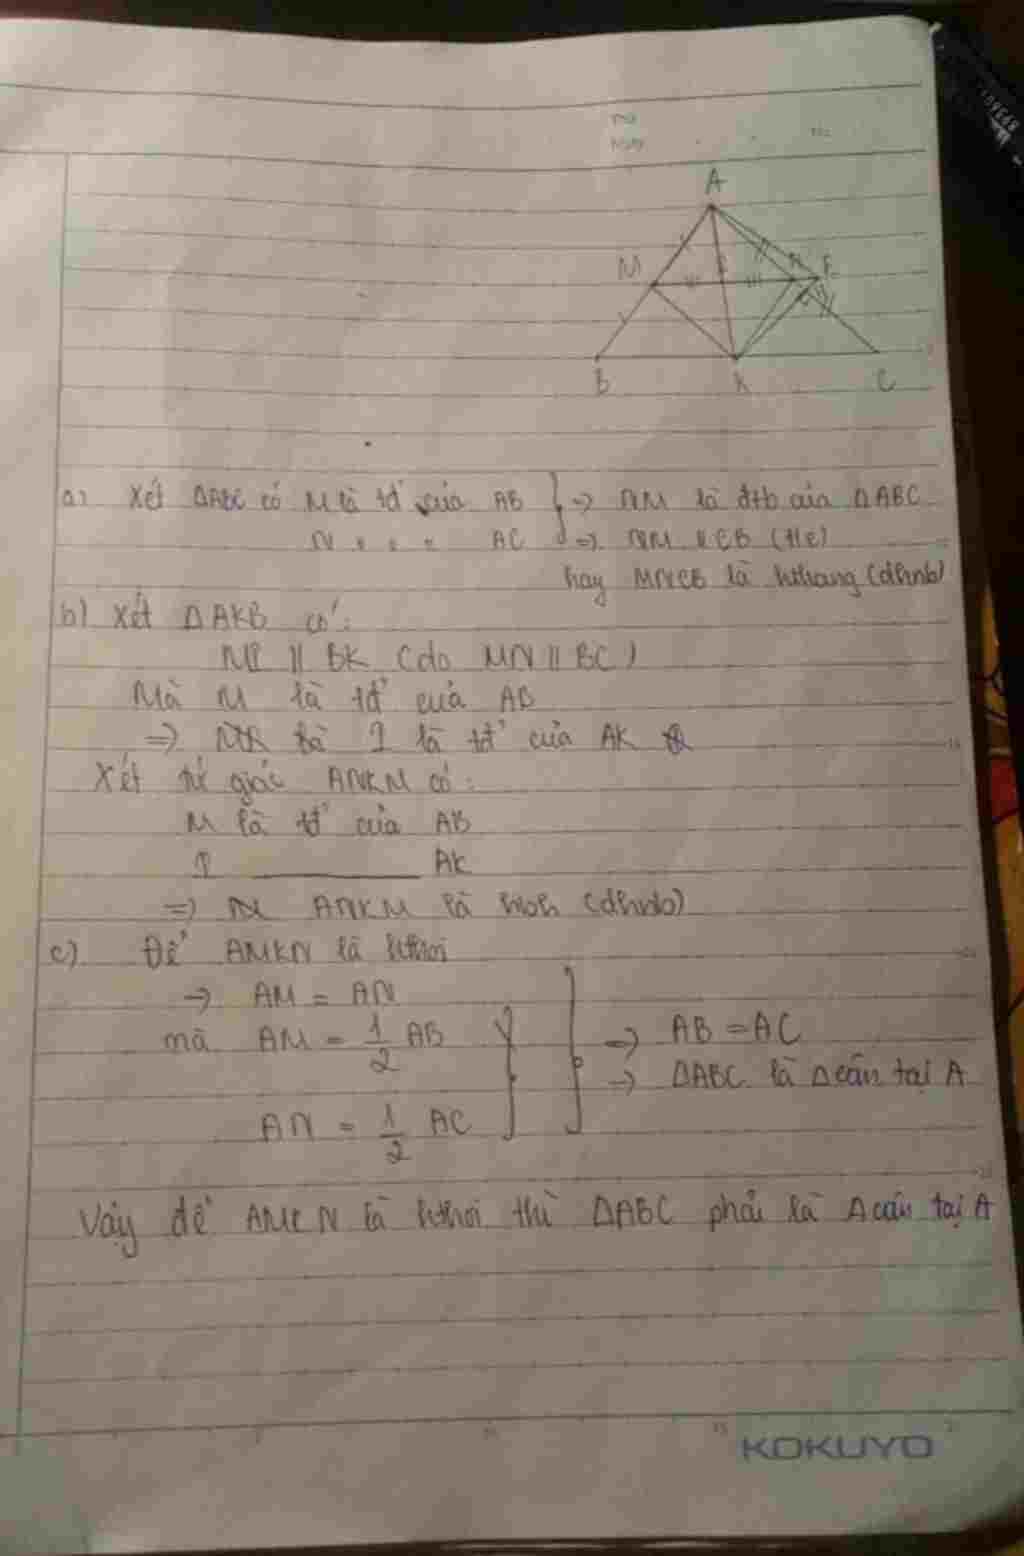 A
M I N E
B K C
a) Xét ΔABC có M là tđ của AB } => NM là đtb của ΔABC
N " " " AC => NM // CB (t/c)
hay MNCB là hthang (dhnb)
b) Xét ΔAKB có:
MI // BK (do MN // BC)
Mà M là tđ của AB
=> I là tđ của AK
Xét tứ giác ANKM có:
M là tđ của AB
I ________ AK
=> ANKM là hbh (dhnb)
c) Để AMKN là hthoi
=> AM = AN
mà AM = 1/2 AB => AB = AC
=> ΔABC là Δ cân tại A
AN = 1/2 AC
Vậy để AMKN là hthoi thì ΔABC phải là Δ cân tại A
KOKUYO